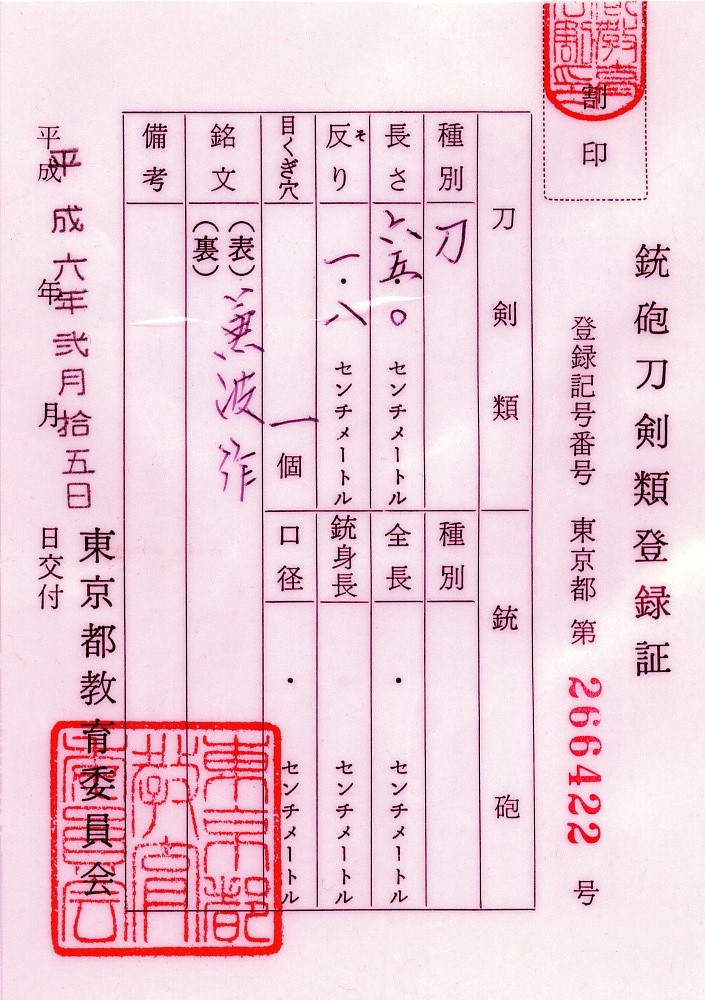 割印
銃砲刀剣類登録証
登録記号番号 東京都 第 266422 号
刀剣類 銃砲
種別 刀
種別
長さ 六五.〇 センチメートル
全長 ・ センチメートル
反り そ 一.八 センチメートル
銃身長 センチメートル
目くぎ穴 一 個
口径 ・ センチメートル
銘文 (表) 兼波作
(裏)
備考
平成 年 月 日交付
平成六年弐月拾五日
東京都教育委員会
東京都
教育
委員会